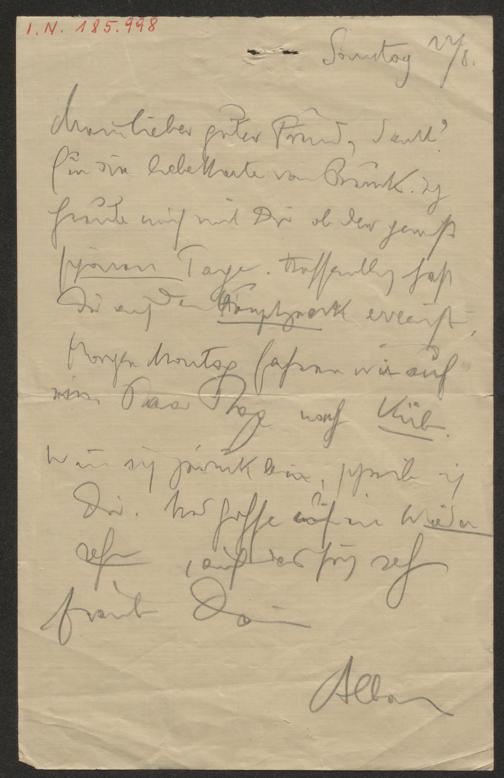 I.N. 185.998
Sonntag 22/8.
Mein lieber guter Freund, dank'
für die liebe Karte von Bruck. Ich
freute mich mit Dir ob der gewiß
schönen Tage. Hoffentlich hast
Du auch den Hauptzweck erreicht.
Morgen Montag fahren wir auf
ein Paar Tage nach Küb.
Wenn ich zurück bin, schreib ich
Dir. Und hoffe auf ein Wieder
sehn, auf das sich sehr
freut Dein
Alban